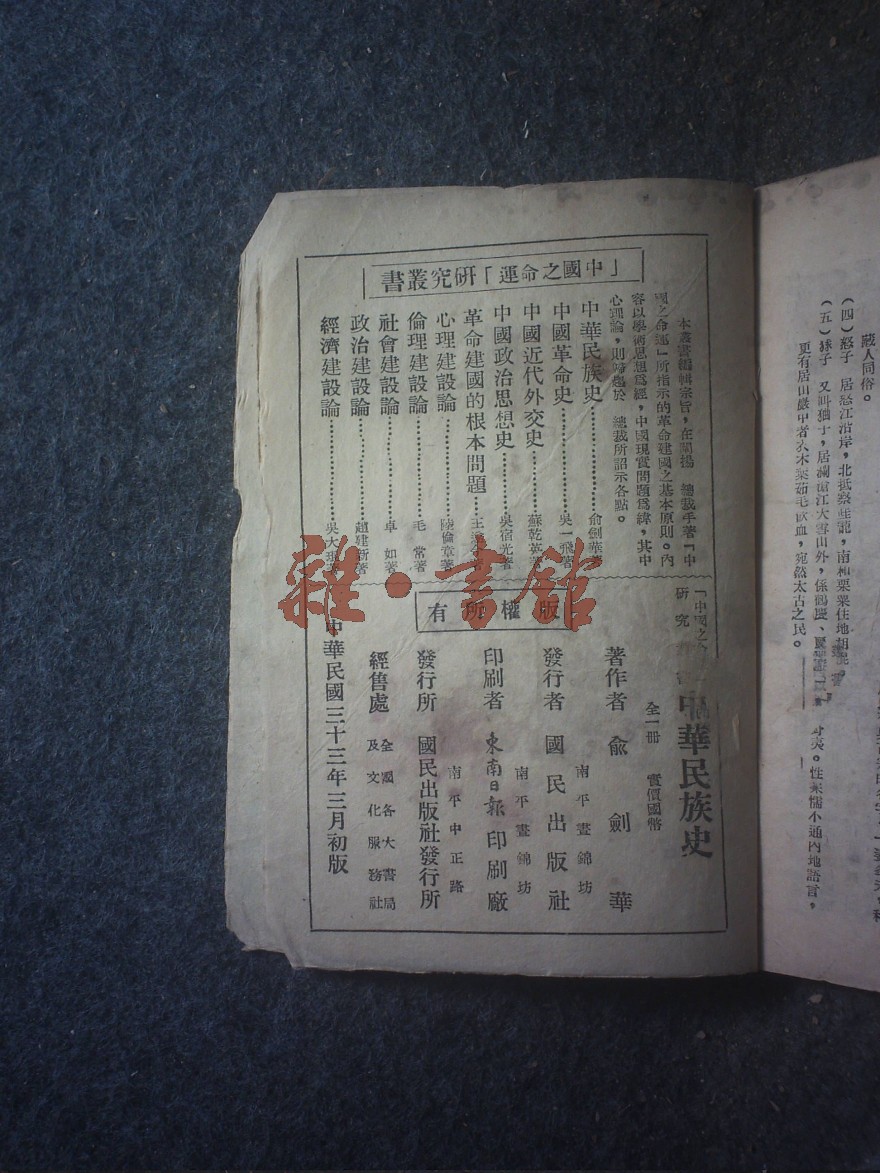 藏人同俗。
(四)怒子 居怒江沿岸,北抵察
住地
(五)
又叫
,居瀾滄江大雪山外,係鶴慶、
夷。性柔懦不通內地語言,
更有居山巖中者衣木葉茹毛飲血,宛然太古之民。
「中國之命運」研究叢書
本叢書編輯宗旨,在闡揚 總裁手著「中
國之命運」所指示的革命建國之基本原則。內
容以學術思想爲經,中國現實問題爲緯,其中
心理論,則歸趨於 總裁所詔示各點。
中華民族史………俞劍華
中國革命史………吳一飛著
中國近代外交史………蘇乾英著
中國政治思想史………吳宿光著
革命建國的根本問題………王
心理建設論………陸倫章著
倫理建設論………毛 常著
社會建設論………卓 如著
政治建設論………趙建新著
經濟建設論………吳大琨著
「中國之命
研究
中華民族史
全一冊 實價國幣
版權所有
著作者 俞劍華
南平晝錦坊
發行者 國民出版社
南平晝錦坊
印刷者 東南日報印刷廠
南平中正路
發行所 國民出版社發行所
經售處 全國各大書局
及文化服務社
中華民國三十三年三月初版
雜·書館